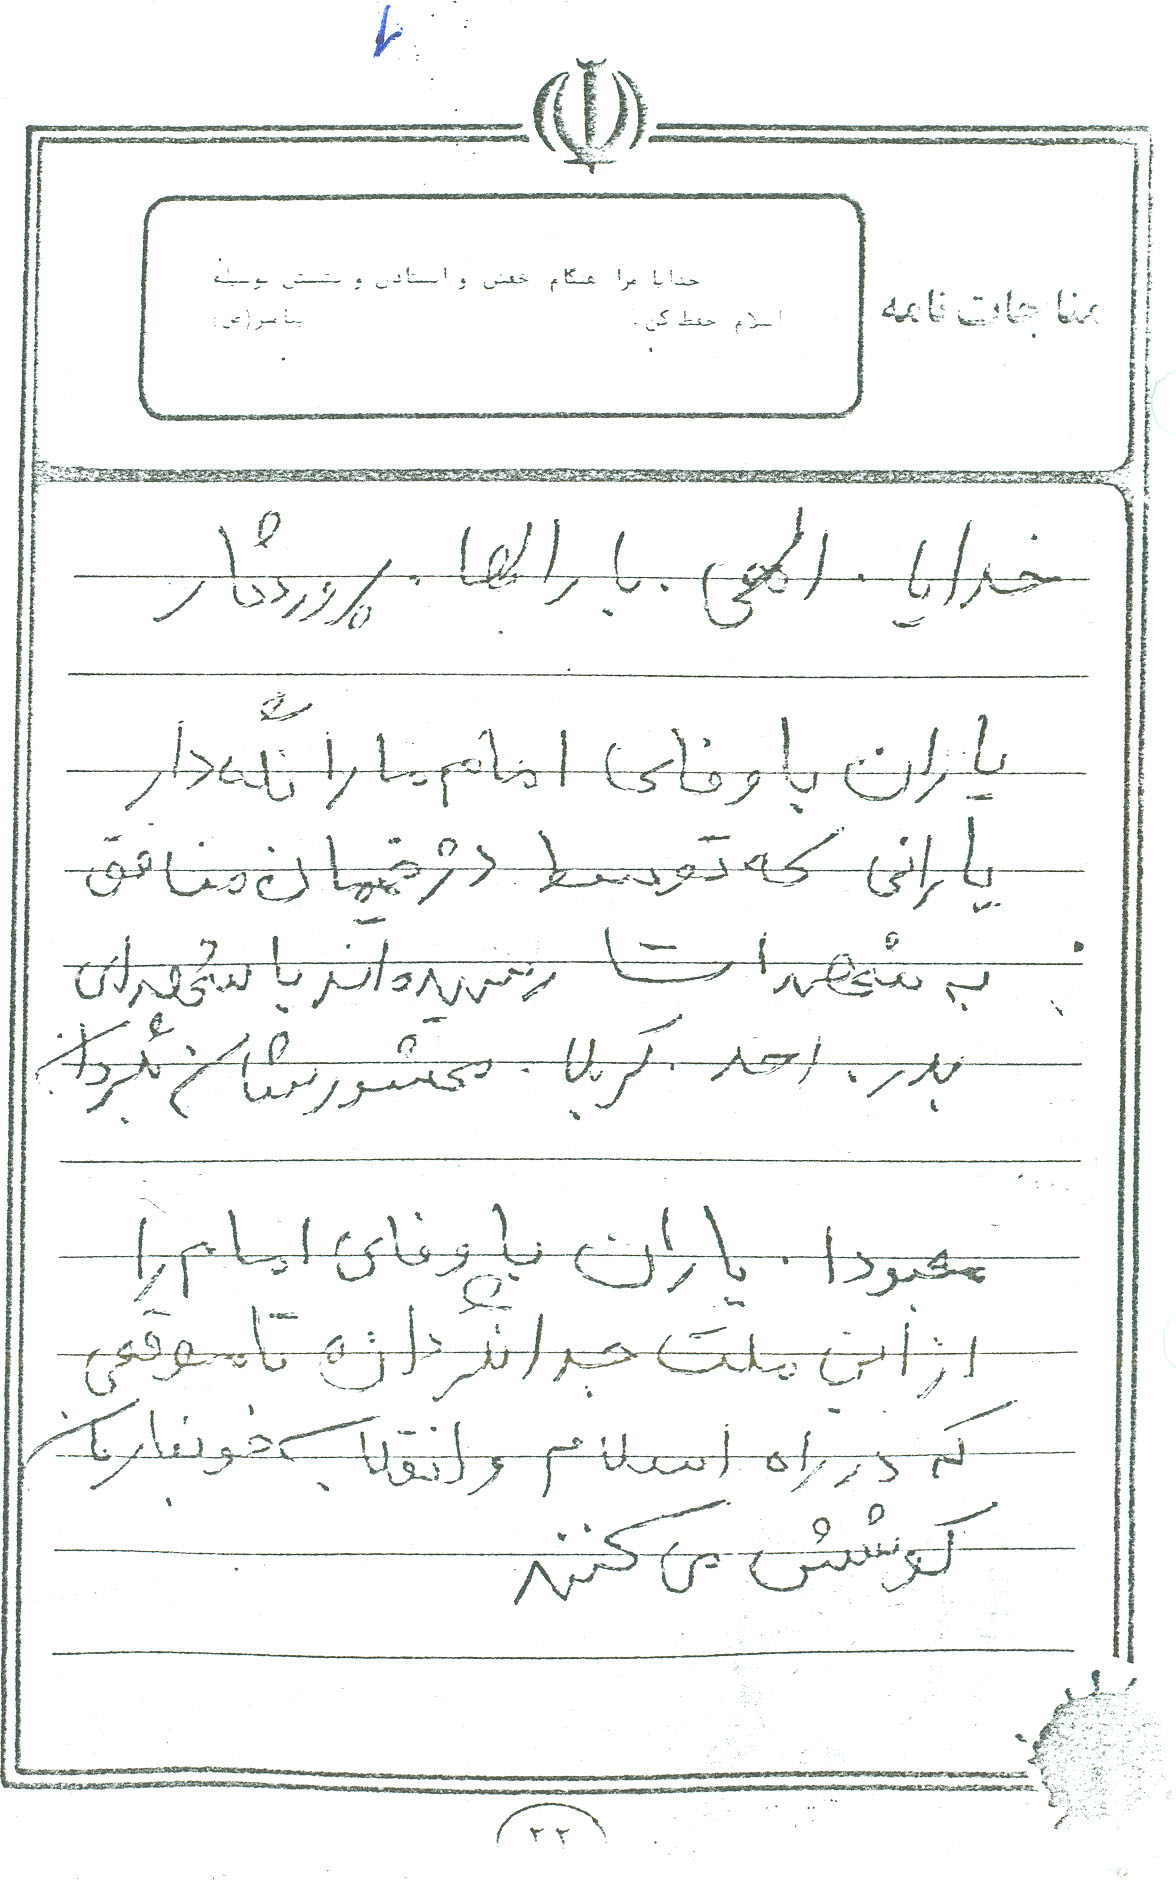 ۱
خدایا مرا هنگام خفتن و ایستادن و نشستن بوسیله
اسلام حفظ کن. پیامبر(ص)
مناجات نامه
خدایا. الهی. بارالها. پروردگار
یاران باوفای امام ما را نگه دار
یارانی که توسط دژخیمان منافق
به شهدات رسیده اند با شهدای
بدر. احد. کربلا. محشورشان بگردان
معبودا. یاران باوفای امام را
از این ملت جدا نگردان تا موقعی
که در راه اسلام و انقلاب خونبارمان
کوشش می کنند
۲۲